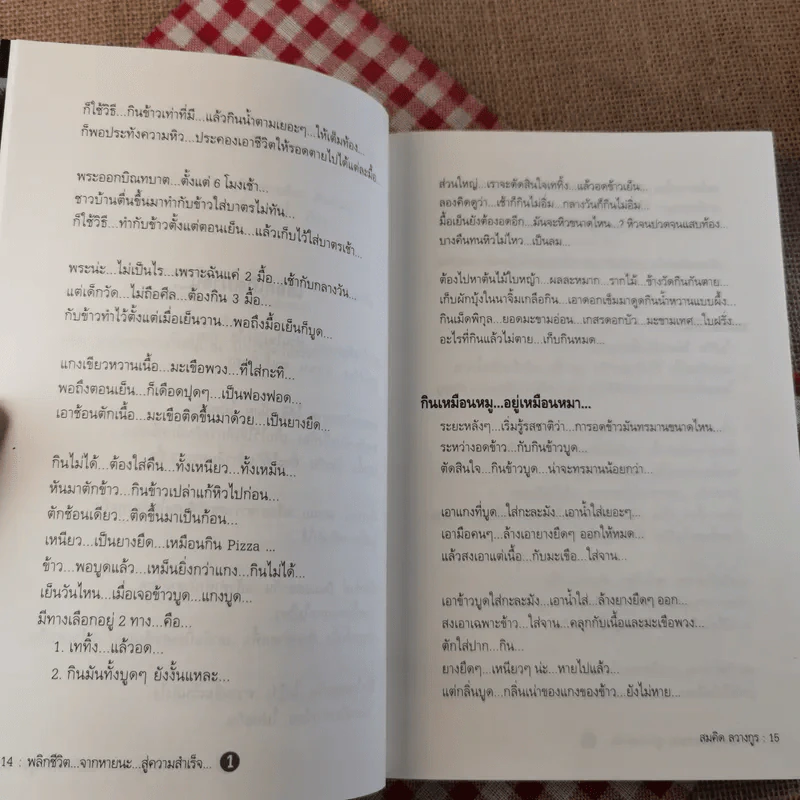 ก็ใช้วิธี...กินข้าวเท่าที่มี...แล้วกินน้ำตามเยอะๆ...ให้เต็มท้อง...
ก็พอประทังความหิว...ประคองเอาชีวิตให้รอดตายไปได้แต่ละมื้อ...
พระออกบิณฑบาต...ตั้งแต่ 6 โมงเช้า...
ชาวบ้านตื่นขึ้นมาทำกับข้าวใส่บาตรไม่ทัน...
ก็ใช้วิธี...ทำกับข้าวตั้งแต่ตอนเย็น...แล้วเก็บไว้ใส่บาตรเช้า...
พระน่ะ...ไม่เป็นไร...เพราะฉันแค่ 2 มื้อ...เช้ากับกลางวัน...
แต่เด็กวัด...ไม่ถือศีล...ต้องกิน 3 มื้อ...
กับข้าวทำไว้ตั้งแต่เมื่อเย็นวาน...พอถึงมื้อเย็นก็บูด...
แกงเขียวหวานเนื้อ...มะเขือพวง...ที่ใส่กะทิ...
พอถึงตอนเย็น...ก็เดือดปุดๆ...เป็นฟองฟอด...
เอาช้อนตักเนื้อ...มะเขือติดขึ้นมาด้วย...เป็นยางยืด...
กินไม่ได้...ต้องใส่คืน...ทั้งเหนียว...ทั้งเหม็น...
หันมาตักข้าว...กินข้าวเปล่าแก้หิวไปก่อน...
ตักช้อนเดียว...ติดขึ้นมาเป็นก้อน...
เหนียว...เป็นยางยืด...เหมือนกิน Pizza ...
ข้าว...พอบูดแล้ว...เหม็นยิ่งกว่าแกง...กินไม่ได้...
เย็นวันไหน...เมื่อเจอข้าวบูด...แกงบูด...
มีทางเลือกอยู่ 2 ทาง...คือ...
1. เททิ้ง...แล้วอด...
2. กินมันทั้งบูดๆ ยังงั้นแหละ...
14 : พลิกชีวิต...จากหายนะ...สู่ความสำเร็จ... 1
ส่วนใหญ่...เราจะตัดสินใจเททิ้ง...แล้วอดข้าวเย็น...
ลองคิดดูว่า...เช้าก็กินไม่อิ่ม...กลางวันก็กินไม่อิ่ม...
มื้อเย็นยังต้องอดอีก...มันจะหิวขนาดไหน...? หิวจนปวดจนแสบท้อง...
บางคืนทนหิวไม่ไหว...เป็นลม...
ต้องไปหาต้นไม้ใบหญ้า...ผลละหมาก...รากไม้...ข้างวัดกินกันตาย...
เก็บผักบุ้งในนาจิ้มเกลือกิน...เอาดอกเข็มมาดูดกินน้ำหวานแบบผึ้ง...
กินเม็ดพิกุล...ยอดมะขามอ่อน...เกสรดอกบัว...มะขามเทศ...ใบฝรั่ง...
อะไรที่กินแล้วไม่ตาย...เก็บกินหมด...
กินเหมือนหมู...อยู่เหมือนหมา...
ระยะหลังๆ...เริ่มรู้รสชาติว่า...การอดข้าวมันทรมานขนาดไหน...
ระหว่างอดข้าว...กับกินข้าวบูด...
ตัดสินใจ...กินข้าวบูด...น่าจะทรมานน้อยกว่า...
เอาแกงที่บูด...ใส่กะละมัง...เอาน้ำใส่เยอะๆ...
เอามือคนๆ...ล้างเอายางยืดๆ ออกให้หมด...
แล้วสงเอาแต่เนื้อ...กับมะเขือ...ใส่จาน...
เอาข้าวบูดใส่กะละมัง...เอาน้ำใส่...ล้างยางยืดๆ ออก...
สงเอาเฉพาะข้าว...ใส่จาน...คลุกกับเนื้อและมะเขือพวง...
ตักใส่ปาก...กิน...
ยางยืดๆ...เหนียวๆ น่ะ...หายไปแล้ว...
แต่กลิ่นบูด...กลิ่นเน่าของแกงของข้าว...ยังไม่หาย...
สมคิด ลวางกูร : 15